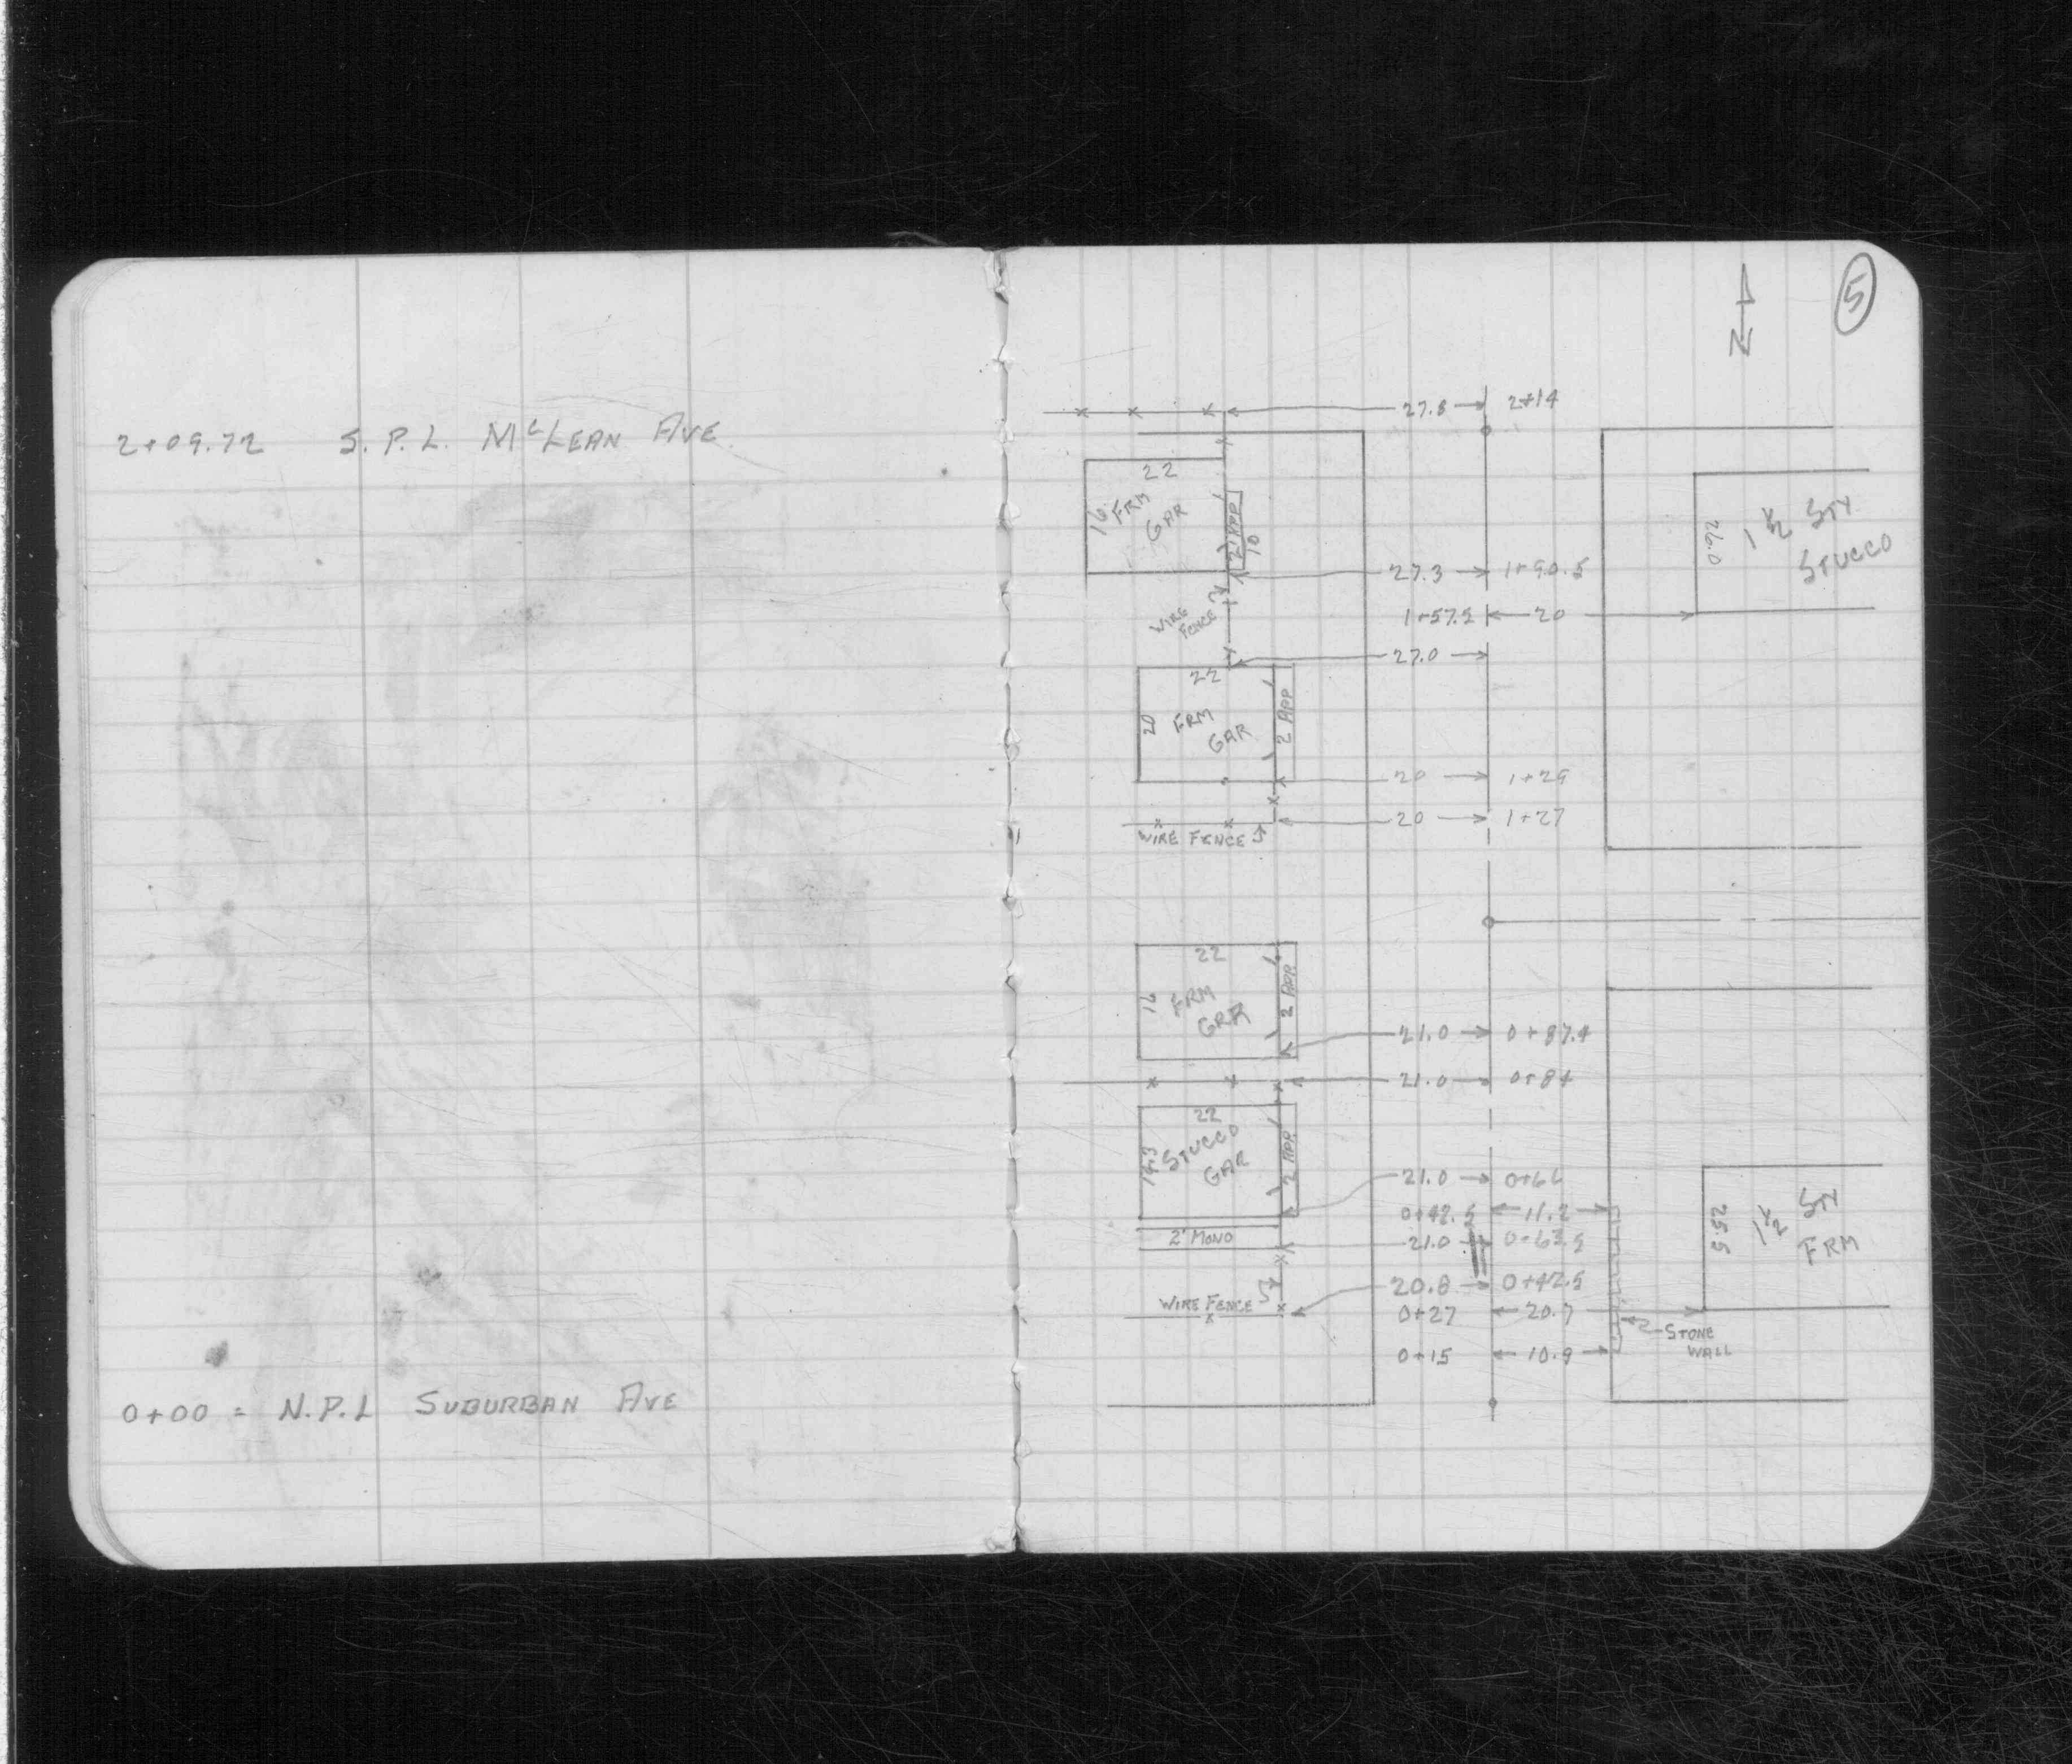 2+09.72 S.P.L. McLEAN AVE
0+00 = N.P.L SUBURBAN AVE
5
N
27.8 2+14
22
16
FRM
GAR
2' APP
10
26.0
1 1/2 STY
STUCCO
27.3 1+90.5
WIRE
FENCE
1+57.5 20
27.0
22
20
FRM
GAR
2 APP
20 1+29
20 1+27
WIRE FENCE
22
FRM
GAR
2 APP
21.0 0+87.4
21.0 0+84
22
STUCCO
GAR
2 APP
21.0 0+66
0+42.5 11.2
2' MONO
21.0 0+63.5
25.5
1 1/2 STY
FRM
20.8 0+42.5
WIRE FENCE
0+27 20.7
STONE
WALL
0+15 10.9